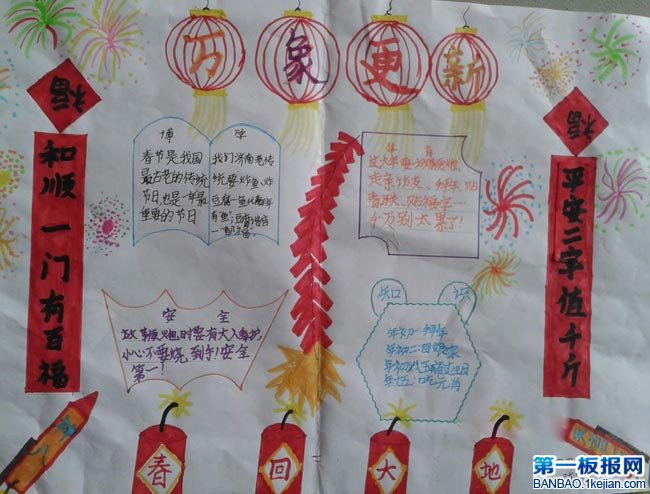 万象更新
福
福
和顺一门有百福
平安二字值千斤
博学
春节是我国
最古老的传统
节日,也是一年最
重要的节日
我们济南老传
统要炸鱼、炸
豆腐
有鱼
体育
过大年要
走亲访友、拜年、贴
春联、贴福字
千万别太累了!
安全
放鞭炮时要有大人看护
小心不要烧到手!安全
第一!
知识
年初一:拜年
年初二:回娘家
年初五:吃元宵
春回大地
第一板报网
BANBAO.1kejian.com